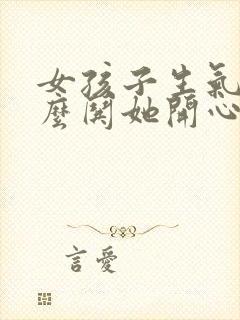 女孩子生氣
麼関她開心
言愛